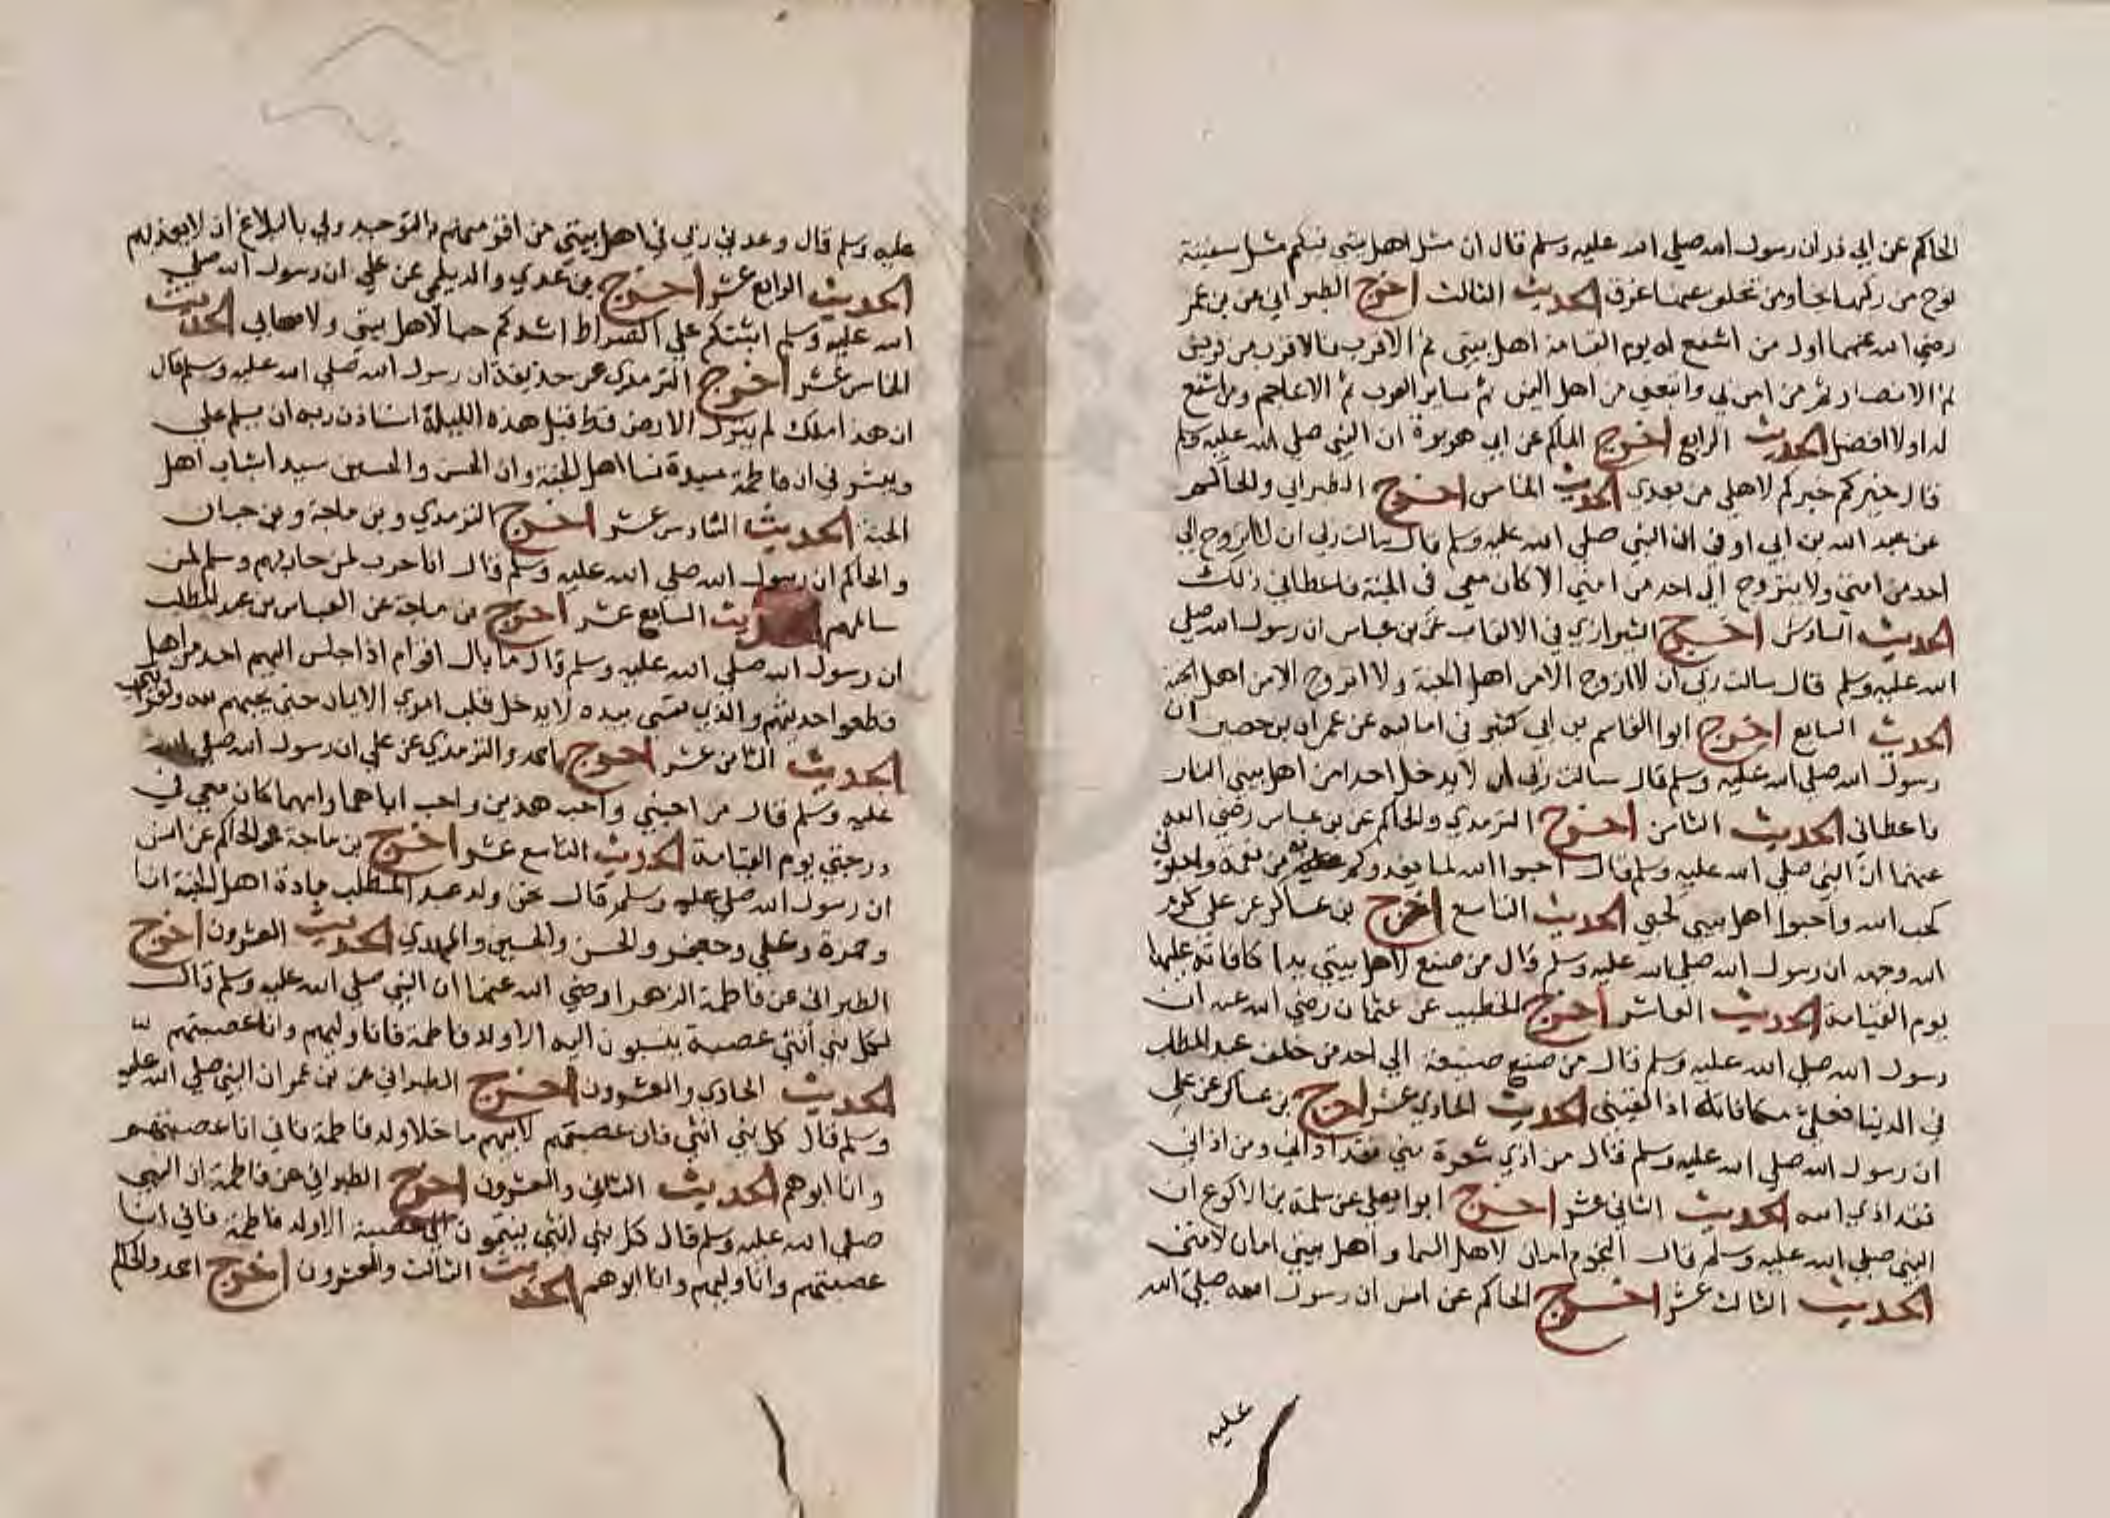 الحاكم عن ابي ذر ان رسول الله صلي الله عليه وسلم قال ان مثل اهل بيتي فيكم مثل سفينة
نوح من ركبها نجا ومن تخلف عنها غرق الحديث الثالث اخرج الطبراني عن بن عمر
رضي الله عنهما اول من اشفع له يوم القيامة اهل بيتي ثم الاقرب فالاقرب من قريش
ثم الانصار ثم من امن بي واتبعني من اهل اليمن ثم ساير العرب ثم الاعاجم ومن اشفع
له اولا افضل الحديث الرابع اخرج الحاكم عن ابي هريرة ان النبي صلي الله عليه وسلم
قال خيركم خيركم لاهلي من بعدي الحديث الخامس اخرج الطبراني والحاكم
عن عبد الله بن ابي اوفي ان النبي صلي الله عليه وسلم قال سالت ربي ان لا اتزوج الي
احد من امتي ولا يتزوج الي احد من امتي الا كان معي في الجنة فاعطاني ذلك
الحديث السادس اخرج الشيرازي في الالقاب عن بن عباس ان رسول الله صلي
الله عليه وسلم قال سالت ربي ان لا ازوج الا من اهل الجنة ولا اتزوج الا من اهل الجنة
الحديث السابع اخرج ابوا القاسم بن ابي كثير في اماليه عن عمران بن حصين ان
رسول الله صلي الله عليه وسلم قال سالت ربي ان لا يدخل احدا من اهل بيتي النار
فاعطاني الحديث الثامن اخرج الترمدي والحاكم عن بن عباس رضي الله
عنهما ان النبي صلي الله عليه وسلم قال احبوا الله لما يغدوكم به من نعمة واحبوني
لحب الله واحبوا اهل بيتي لحبي الحديث التاسع اخرج بن عساكر عن علي كرم
الله وجهه ان رسول الله صلي الله عليه وسلم قال من صنع لاهل بيتي يدا كافاته عليها
يوم القيامة الحديث العاشر اخرج الخطيب عن عثمان رضي الله عنه ان
رسول الله صلي الله عليه وسلم قال من صنع صنيعة الي احد من خلف عبد المطلب
في الدنيا فعلي مكافاته اذا لقيني الحديث الحادي عشر اخرج بن عساكر عن علي
ان رسول الله صلي الله عليه وسلم قال من اذي شعرة مني فقد اذاني ومن اذاني
فقد اذي الله الحديث الثاني عشر اخرج ابوا يعلي عن سلمة بن الاكوع ان
النبي صلي الله عليه وسلم قال النجوم امان لاهل السما واهل بيتي امان لامتي
الحديث الثالث عشر اخرج الحاكم عن انس ان رسول الله صلي الله
عليه
عليه وسلم قال وعدني ربي في اهل بيتي من اقر منهم بالتوحيد ولي بالبلاغ ان لا يعذبهم
الحديث الرابع عشر اخرج بن عدي والديلمي عن علي ان رسول الله صلي
الله عليه وسلم اثبتكم علي الصراط اشدكم حبا لاهل بيتي ولاصحابي الحديث
الخامس عشر اخرج الترمدي عن حذيفة ان رسول الله صلي الله عليه وسلم قال
ان هذا ملك لم ينزل الارض قط قبل هذه الليلة استاذن ربه ان يسلم علي
ويبشرني ان فاطمة سيدة نسا اهل الجنة وان الحسن والحسين سيدا شباب اهل
الجنة الحديث السادس عشر اخرج الترمدي وبن ماجة وبن حبان
والحاكم ان رسول الله صلي الله عليه وسلم قال انا حرب لمن حاربهم وسلم لمن
سالمهم الحديث السابع عشر اخرج بن ماجة عن العباس بن عبد المطلب
ان رسول الله صلي الله عليه وسلم قال ما بال اقوام اذا جلس اليهم احد من اهل بيتي
قطعوا حديثهم والذي نفسي بيده لا يدخل قلب امرئ الايمان حتي يحبهم لله ولقرابتي
الحديث الثامن عشر اخرج احمد والترمدي عن علي ان رسول الله صلي الله
عليه وسلم قال من احبني واحب هذين واحب اباهما وامهما كان معي في
درجتي يوم القيامة الحديث التاسع عشر اخرج بن ماجة والحاكم عن انس
ان رسول الله صلي عليه وسلم قال نحن ولد عبد المطلب سادة اهل الجنة انا
وحمزة وعلي وجعفر والحسن والحسين والمهدي الحديث العشرون اخرج
الطبراني عن فاطمة الزهرا رضي الله عنها ان النبي صلي الله عليه وسلم قال
لكل بني انثي عصبة ينتسبون اليه الا ولد فاطمة فانا وليهم وانا عصبتهم
الحديث الحادي والعشرون اخرج الطبراني عن بن عمر ان النبي صلي الله عليه
وسلم قال كل بني انثي فان عصبتهم لابيهم ما خلا ولد فاطمة فاني انا عصبتهم
وانا ابوهم الحديث الثاني والعشرون اخرج الطبراني عن فاطمة ان النبي
صلي الله عليه وسلم قال كل بني انثي ينتمون الي عصبة الا ولد فاطمة فاني انا
عصبتهم وانا وليهم وانا ابوهم الحديث الثالث والعشرون اخرج احمد والحاكم